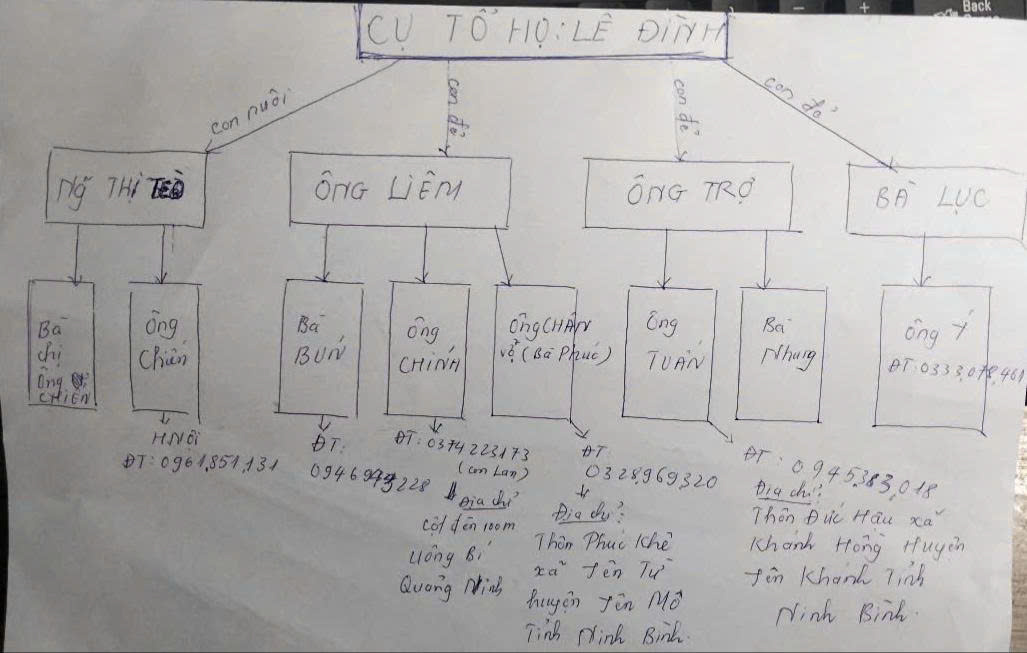 Back
CỤ TỔ HỌ: LÊ ĐÌNH
con nuôi
con đẻ
con đẻ
con đẻ
NG THỊ TEO
ÔNG LIÊM
ÔNG TRỢ
BÀ LỤC
Bà
chị
ông
CHIẾN
ông
Chiến
Bà
BÚN
ông
CHÍNH
ôNg CHÂN
vợ (Bà Phúc)
ông
TUẤN
Bà
Nhung
ông Ý
ĐT: 0333,078,461
H Nội
ĐT: 0961,851,131
ĐT:
ĐT: 0374223173
(con Lan)
Địa chỉ
cột đèn 100m
Uông Bí
Quảng Ninh
ĐT
0328969320
Địa chỉ:
Thôn Phúc Khê
xã Yên Từ
huyện Yên Mô
Tỉnh Ninh Bình.
ĐT: 0945,383,018
Địa chỉ:
Thôn Đức Hậu xã
Khánh Hồng Huyện
Yên Khánh Tỉnh
Ninh Bình.